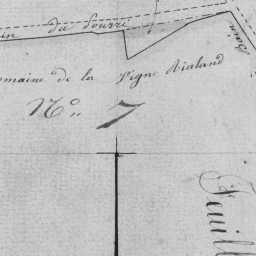 du Fourré
omaine de la Vigne Rialand
N.º 7
Feuill